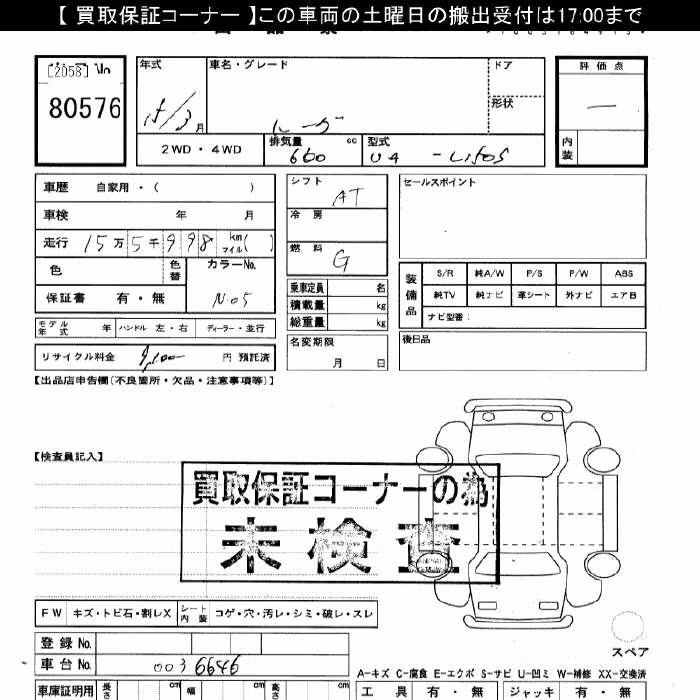 【 買取保証コーナー 】この車両の土曜日の搬出受付は17:00まで
[2058] No
80576
年式
15/3月
車名・グレード
ドア
形状
評価点
内装
2WD・4WD
排気量 660 cc
型式
車歴 自家用・( )
車検 年 月
走行 15万5千998 km マイル( )
色 色替 カラーNo.
N・05
保証書 有・無
モデル年式 年 ハンドル 左・右 ディーラー・並行
リサイクル料金 円 預託済
シフト AT
冷房
燃料 G
乗車定員 名
積載量 kg
総重量 kg
名変期限
月 日
セールスポイント
装備品
S/R 純A/W P/S P/W ABS
純TV 純ナビ 革シート 外ナビ エアB
ナビ型番:
後日品
【出品店申告欄(不良箇所・欠品・注意事項等)】
【検査員記入】
買取保証コーナーの為
未検査
FW キズ・トビ石・割レX シート内装 コゲ・穴・汚レ・シミ・破レ・スレ
スペア
登録 No.
車台 No. 003 6646
A-キズ C-腐食 E-エクボ S-サビ U-凹ミ W-補修 XX-交換済
車庫証明用 長さ cm 幅 cm 高さ cm
工具 有・無 ジャッキ 有・無